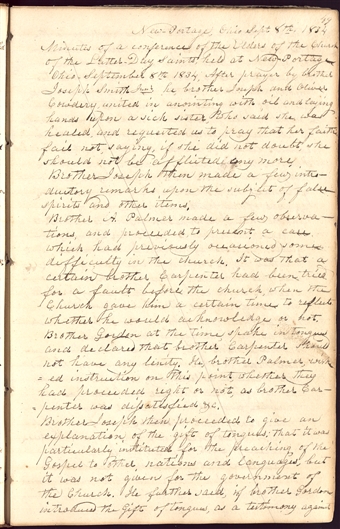 New Portage, Ohio Sept 8th, 1834
Minutes of a conference of the Elders of the Church
of the Latter-Day Saints held at New Portage
Ohio, September 8th 1834. After prayer by brother
Joseph Smith Jr. he brother Joseph and Oliver
Cowdery united in anointing with oil and laying
hands upon a sick sister, who said she was
healed, and requested us to pray that her faith
fail not, saying, if she did not doubt she
should not be afflicted any more,
Brother Joseph then made a few intro-
ductory remarks upon the subject of false
spirits and other items,
Brother A. Palmer made a few observa-
tions, and proceeded to present a case
which had previously occasioned some
difficulty in the church. It was that a
certain brother Carpenter had been tried
for a fault before the church when the
Church gave him a certain time to reflect
whether he would acknowledge or not,
Brother Gordon at the time spake in tongues
and declared that brother Carpenter should
not have any lenity. He, brother Palmer, wish
=ed instruction on this point whether they
had proceeded right or not, as brother Car-
penter was dissatisfied &c.
Brother Joseph then proceeded to give an
explanation of the gift of tongues: that it was
particularly instituted for the preaching of the
Gospel to other nations and languages, but
it was not given for the government of
the Church. He further said, if brother Gordon
introduced the Gift of tongues, as a testimony against